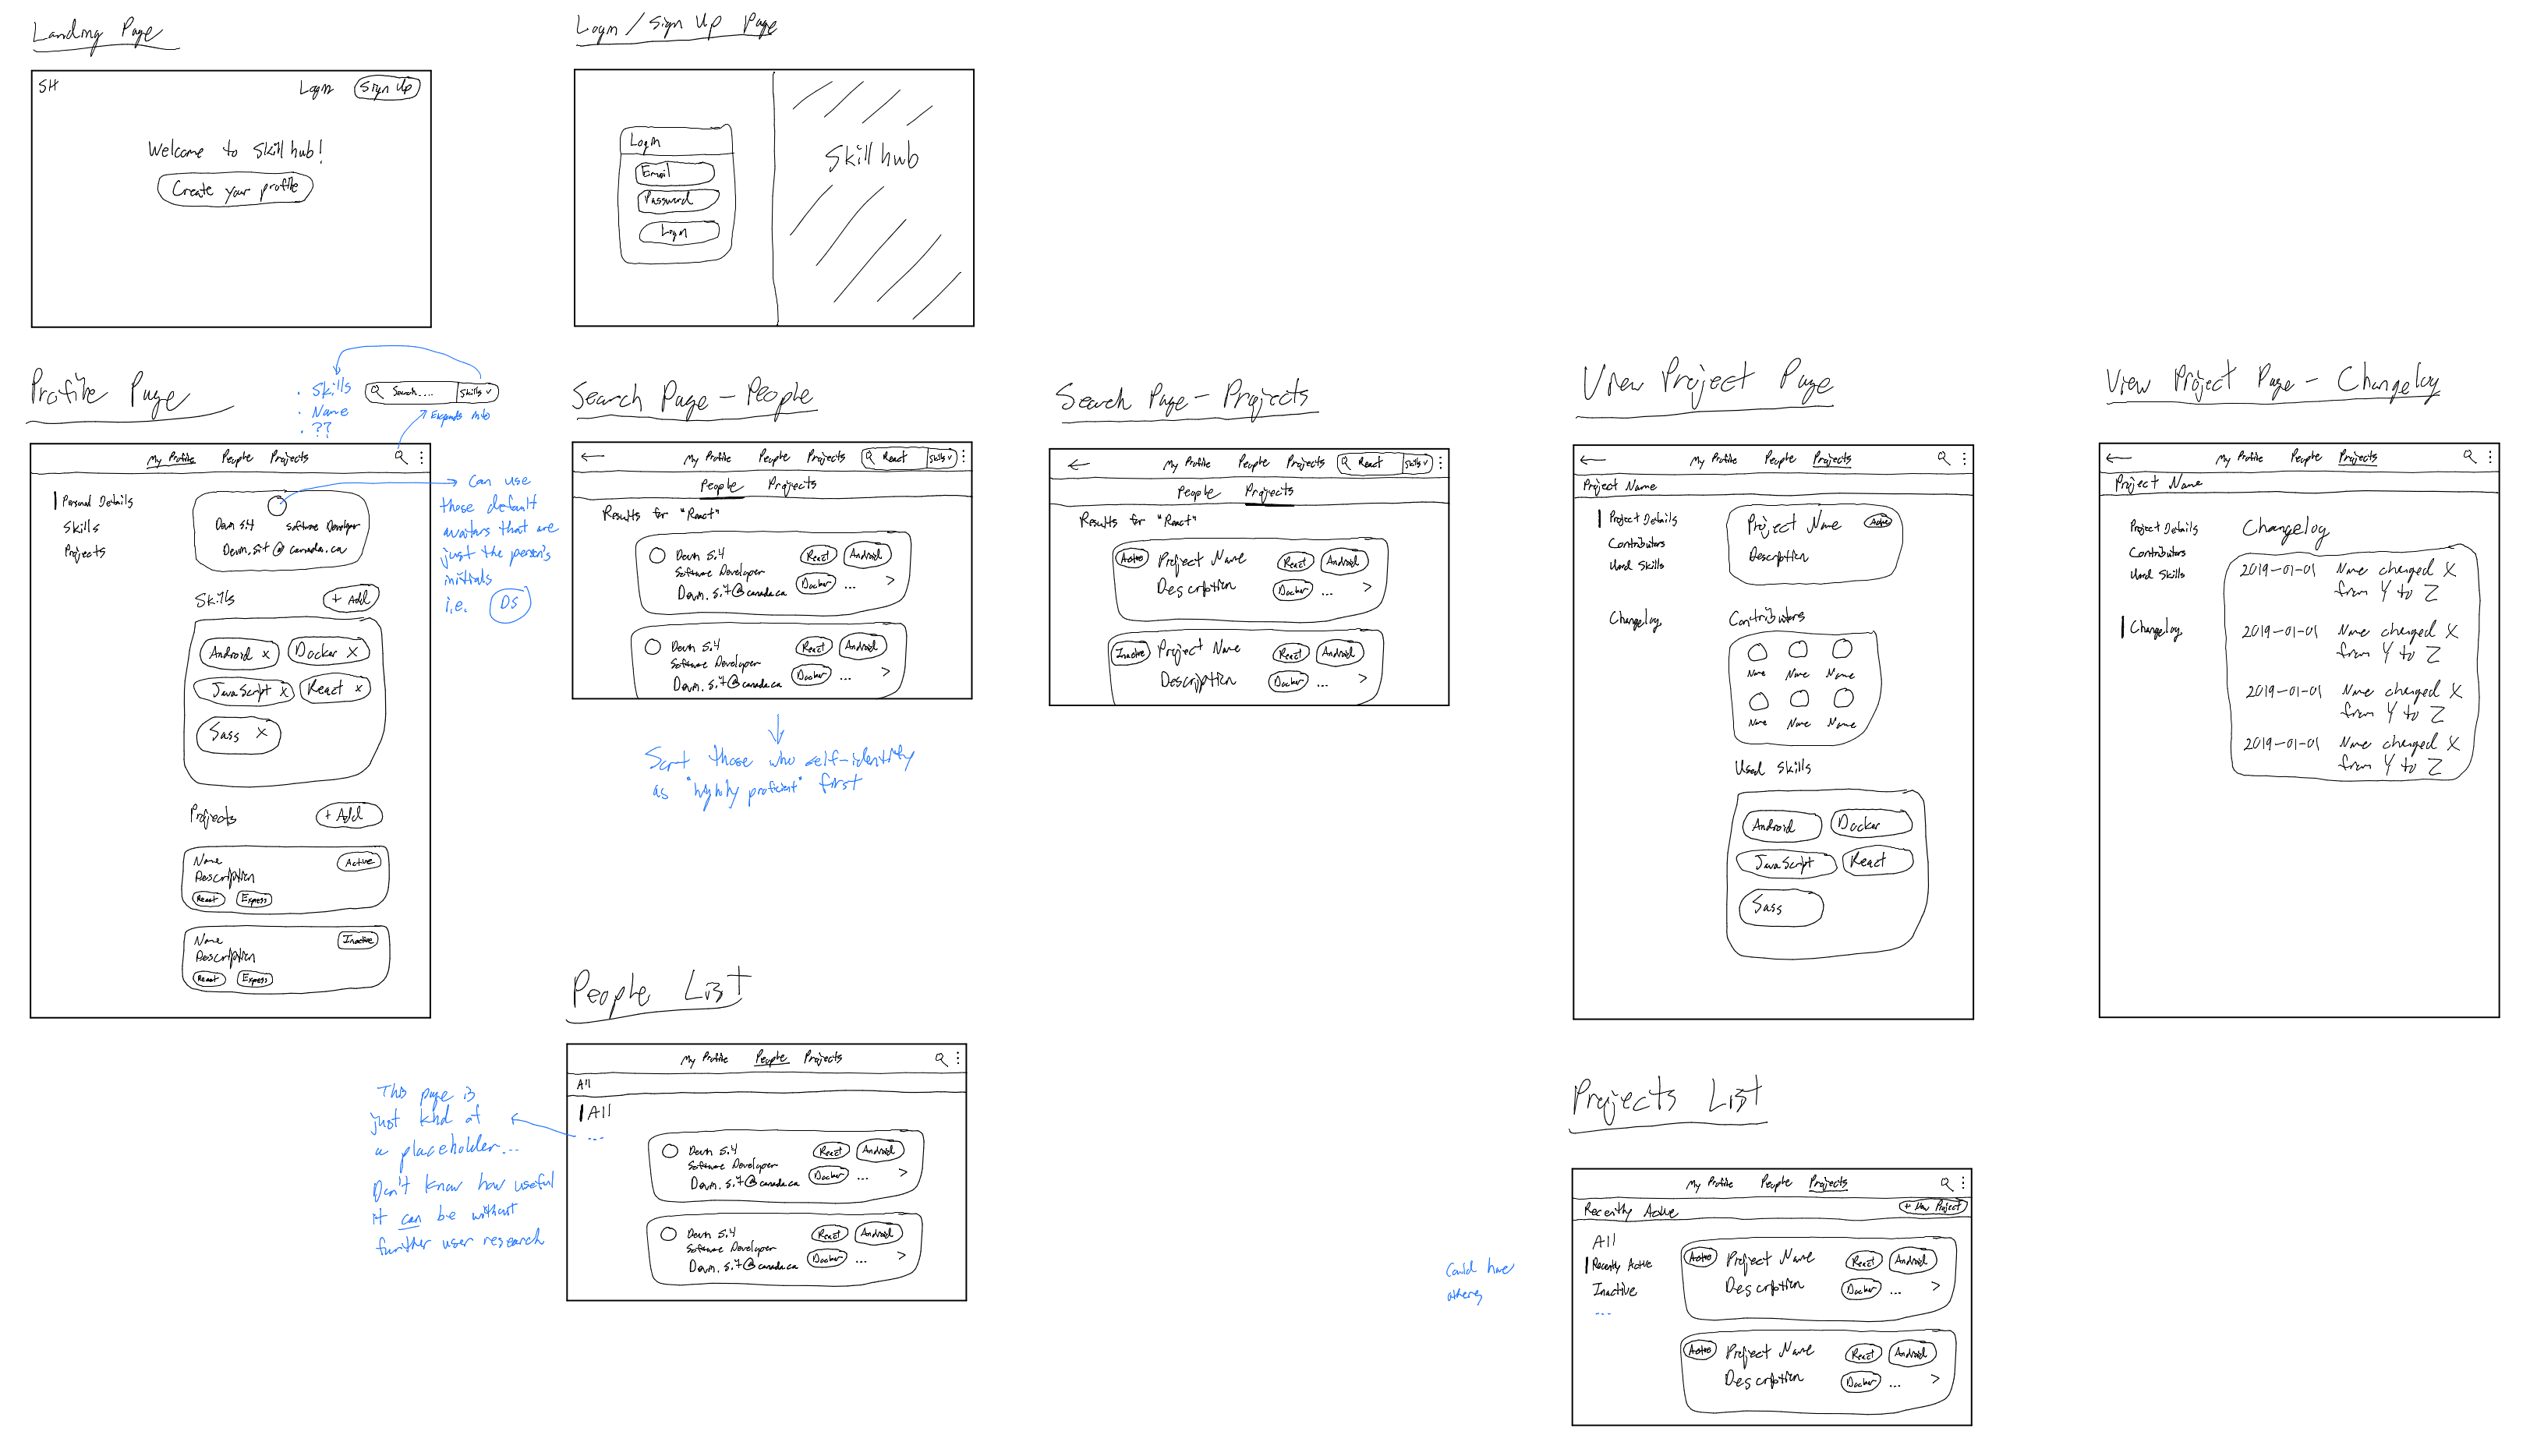 Landing Page
SH
Login
Sign Up
Welcome to Skillhub!
Create your profile
Login / Sign Up Page
Login
Email
Password
Login
Skillhub
Profile Page
· Skills
· Name
· ??
Search....
Skills v
Expands into
My Profile People Projects
Personal Details
Skills
Projects
Devin Sit Software Developer
Devin.Sit@canada.ca
Can use
those default
avatars that are
just the person's
initials
i.e. DS
Skills + Add
Android x Docker x
JavaScript x React x
Sass x
Projects + Add
Name Active
Description
React Express
Name Inactive
Description
React Express
Search Page - People
← My Profile People Projects React Skills v
People Projects
Results for "React"
Devin Sit React Android
Software Developer
Devin.Sit@canada.ca Docker ... >
Devin Sit React Android
Software Developer
Devin.Sit@canada.ca Docker ... >
Sort those who self-identify
as "highly proficient" first
Search Page - Projects
← My Profile People Projects React Skills v
People Projects
Results for "React"
Active Project Name React Android
Description Docker ... >
Inactive Project Name React Android
Description Docker ... >
View Project Page
← My Profile People Projects
Project Name
Project Details
Contributors
Used Skills
Changelog
Project Name Active
Description
Contributors
Name Name Name
Name Name Name
Used Skills
Android Docker
JavaScript React
Sass
View Project Page - Changelog
← My Profile People Projects
Project Name
Project Details
Contributors
Used Skills
Changelog
Changelog
2019-01-01 Name changed X
from Y to Z
2019-01-01 Name changed X
from Y to Z
2019-01-01 Name changed X
from Y to Z
2019-01-01 Name changed X
from Y to Z
People List
My Profile People Projects
All
All
...
This page is
just kind of
a placeholder...
Don't know how useful
it can be without
further user research
Devin Sit React Android
Software Developer
Devin.Sit@canada.ca Docker ... >
Devin Sit React Android
Software Developer
Devin.Sit@canada.ca Docker ... >
Projects List
My Profile People Projects
Recently Active + New Project
All
Recently Active
Inactive
...
Could have
others
Active Project Name React Android
Description Docker ... >
Active Project Name React Android
Description Docker ... >